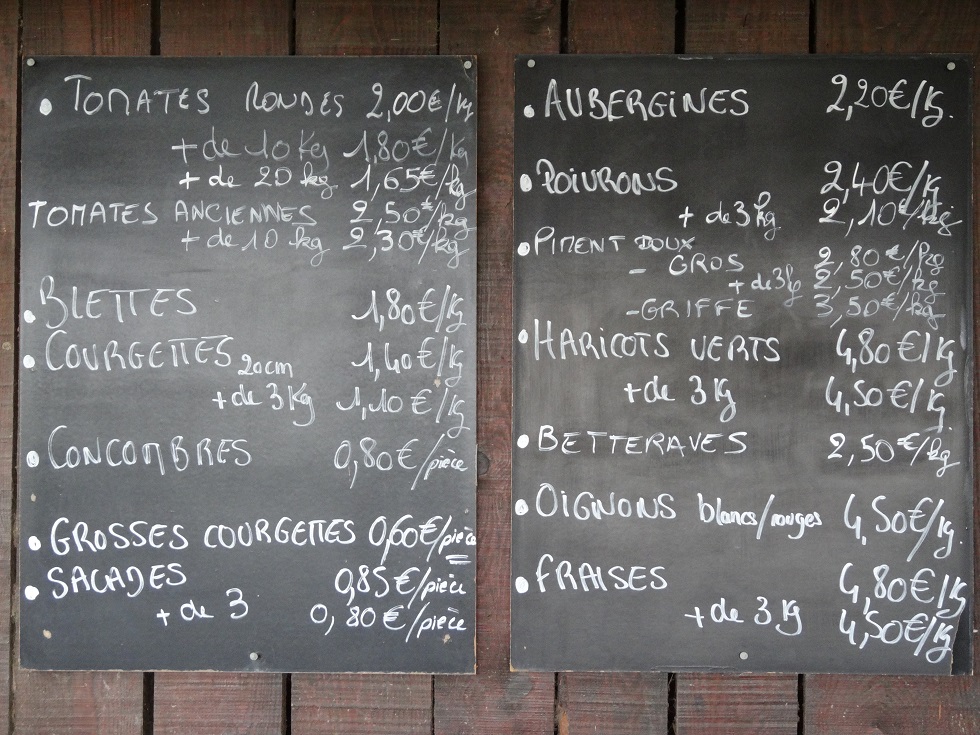 • TOMATES RONDES 2,00€/kg
+ de 10 Kg 1,80€/kg
+ de 20 kg 1,65€/kg
TOMATES ANCIENNES 2,50€/kg
+ de 10 kg 2,30€/kg
• BLETTES 1,80€/Kg
• COURGETTES 20cm 1,40€/Kg
+ de 3 Kg 1,10€/Kg
• CONCOMBRES 0,80€/pièce
• GROSSES COURGETTES 0,60€/pièce
• SALADES 0,85€/pièce
+ de 3 0,80€/pièce
• AUBERGINES 2,20€/Kg.
• POIVRONS 2,40€/Kg
+ de 3 kg 2,10€/kg
• PIMENT DOUX
- GROS 2,80€/kg
+ de 3 kg 2,50€/kg
- GRIFFE 3,50€/kg
• HARICOTS VERTS 4,80€/Kg
+ de 3 Kg 4,50€/Kg
• BETTERAVES 2,50€/kg
• OIGNONS blancs/rouges 4,50€/Kg.
• FRAISES 4,80€/Kg
+ de 3 Kg 4,50€/Kg